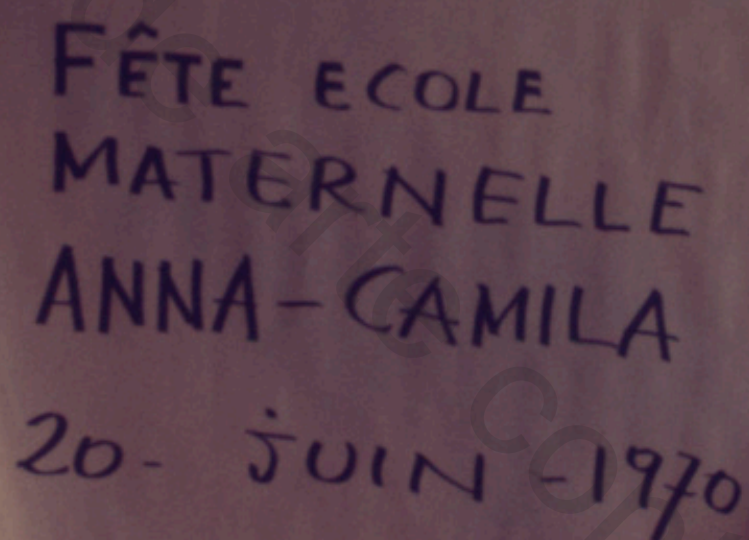 FÊTE ECOLE
MATERNELLE
ANNA-CAMILA
20- jUIN -1970